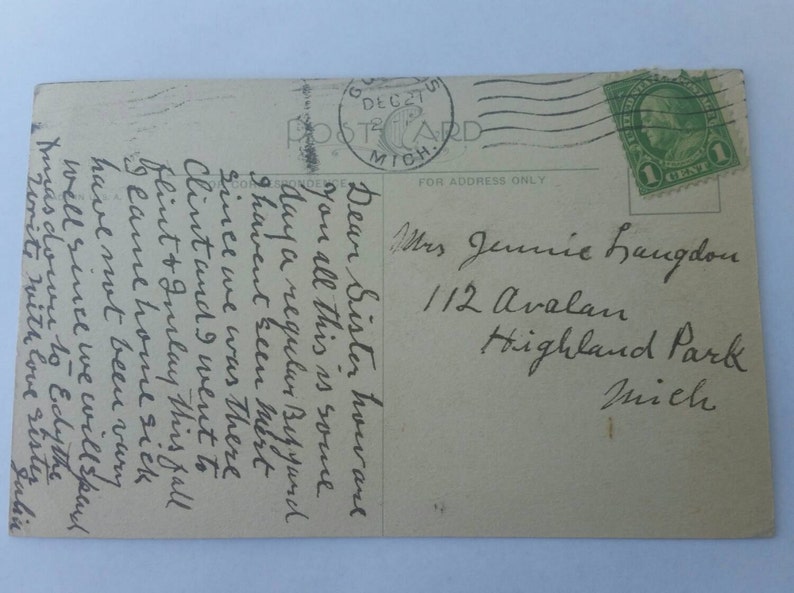 DEC 21
MICH.
POST CARD
FOR CORRESPONDENCE
FOR ADDRESS ONLY
1 CENT 1
Dear Sister how are
you all this is some
day a regular Blizzard
I havent seen Mert
since we was there
Clint and I went to
Flint & Imlay this fall
I came home sick
have not been very
well since we will spend
Xmas down to Edythe
write with love sister
Julia
Mrs Jennie Langdon
112 Avalan
Highland Park
Mich